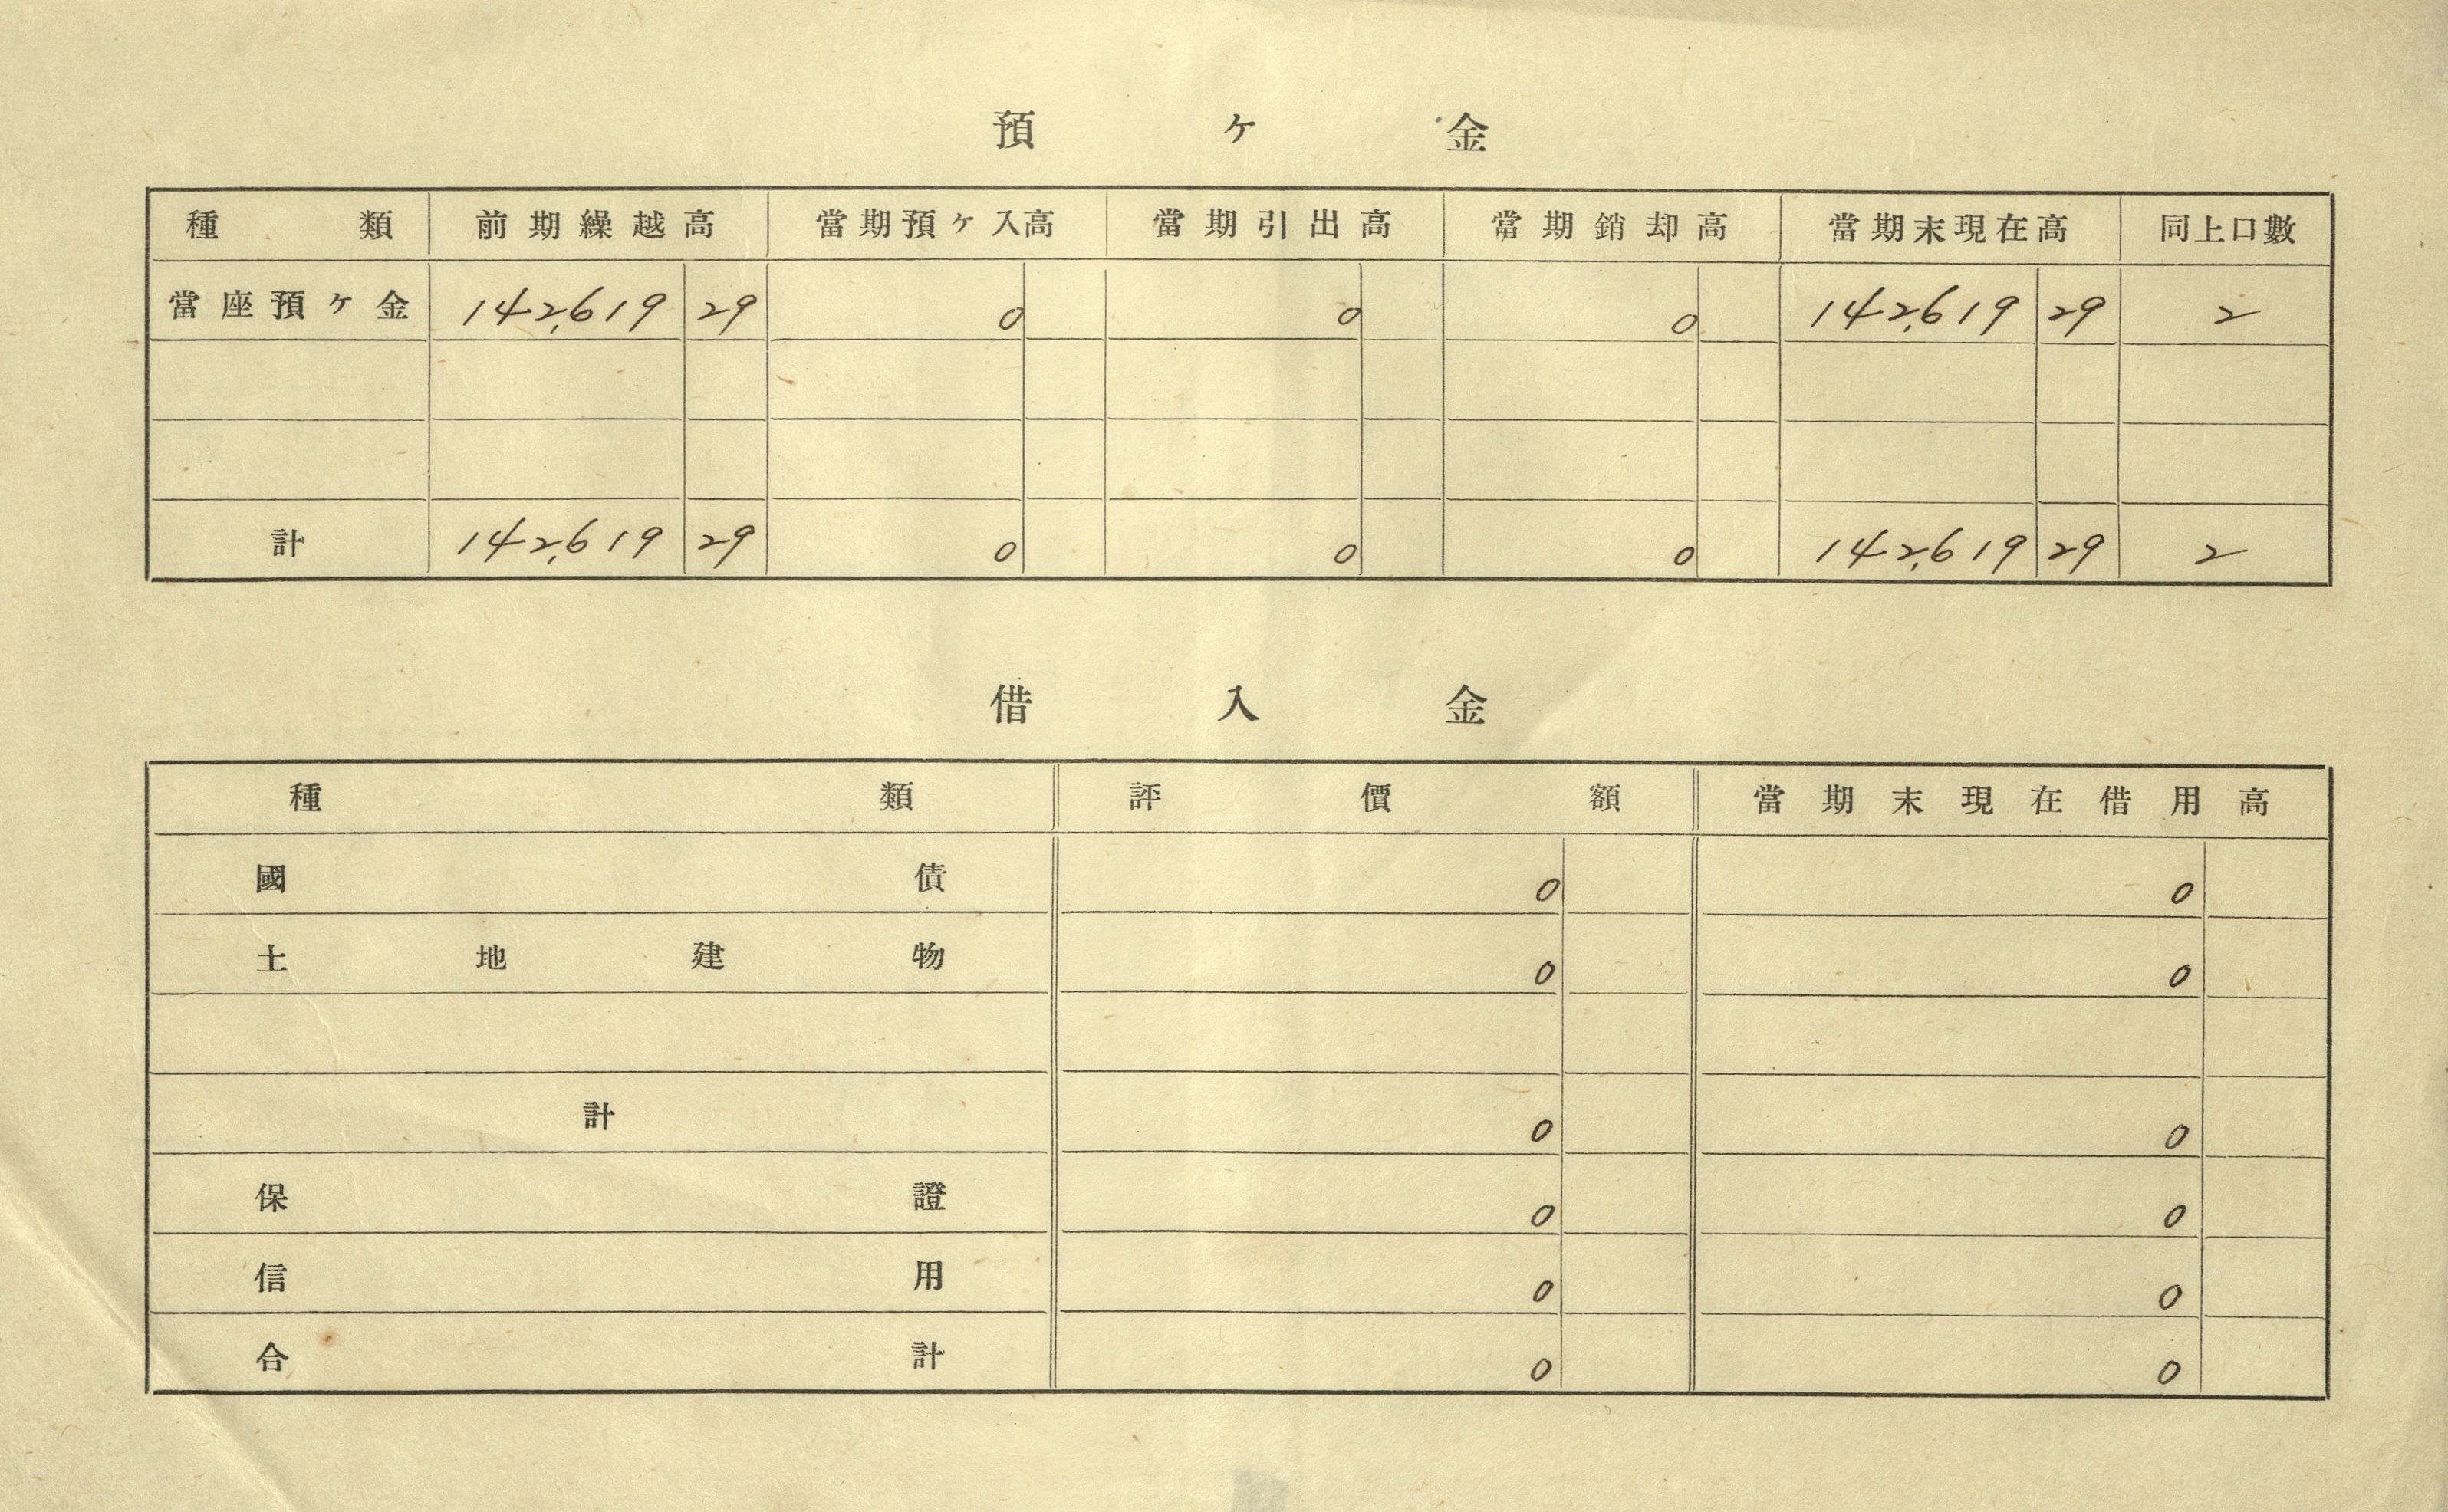 預ヶ金
種類 前期繰越高 當期預ヶ入高 當期引出高 當期銷却高 當期末現在高 同上口數
當座預ヶ金 142,619 29 0 0 0 142,619 29 2
計 142,619 29 0 0 0 142,619 29 2
借入金
種類 評價額 當期末現在借用高
國債 0 0
土地建物 0 0
計 0 0
保證 0 0
信用 0 0
合計 0 0